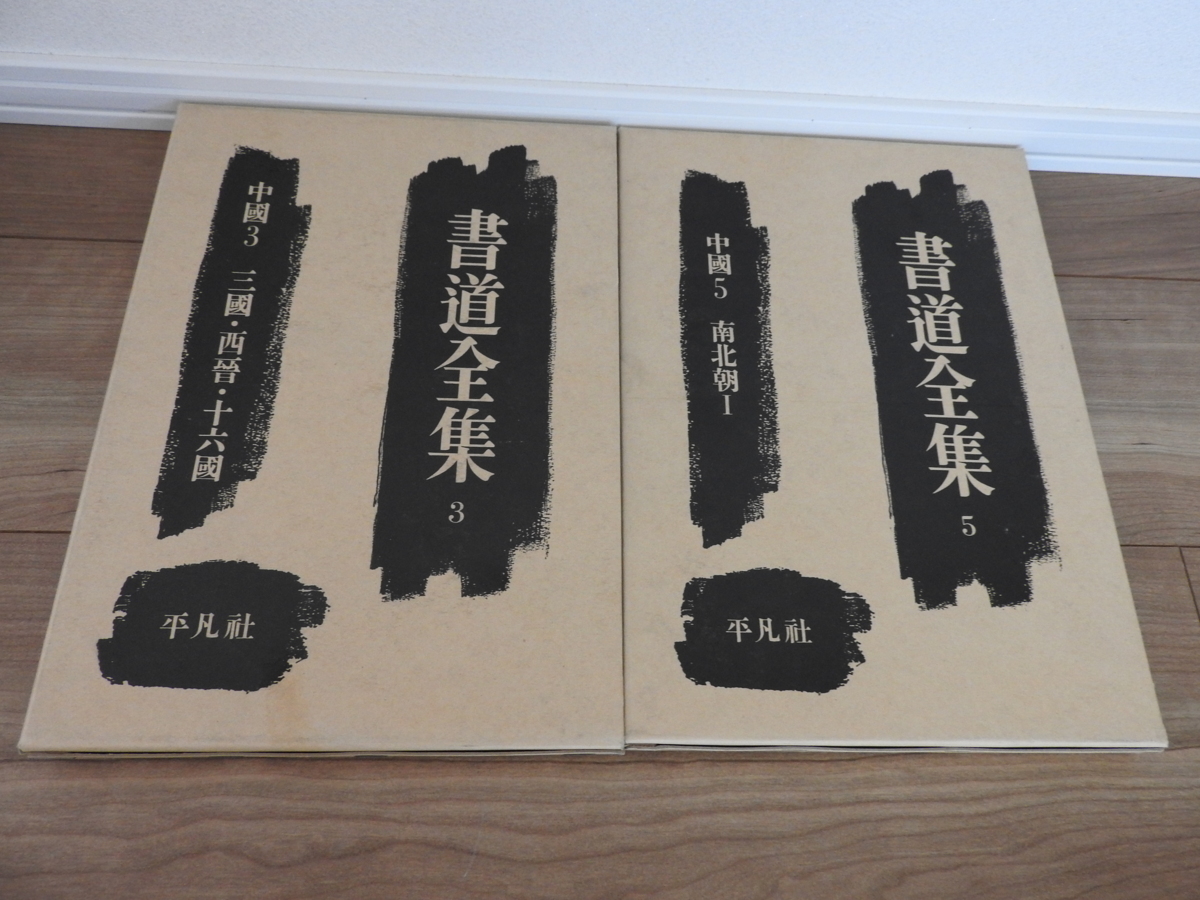 書道全集 3
中國3 三國・西晉・十六國
平凡社
書道全集 5
中國5 南北朝I
平凡社